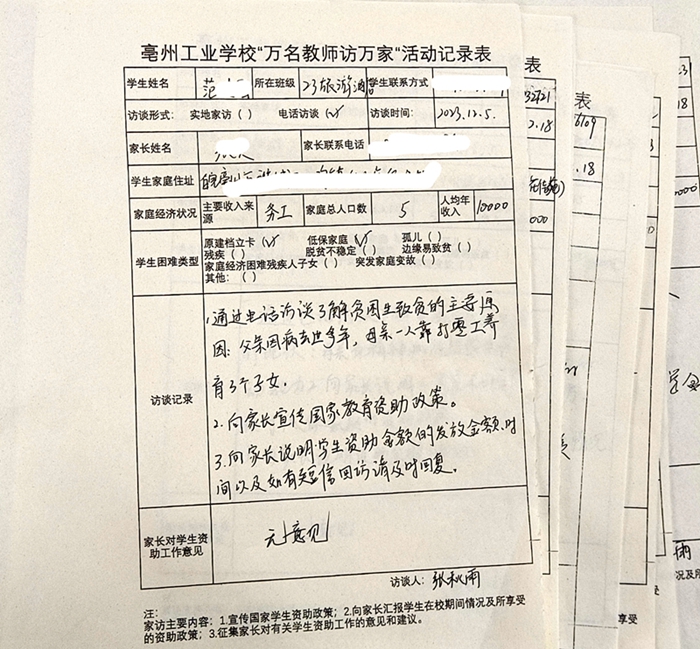 亳州工业学校“万名教师访万家“活动记录表
学生姓名 范 所在班级 23旅游 学生联系方式
访谈形式: 实地家访 ( ) 电话访谈 (✓) 访谈时间: 2023.12.5.
家长姓名 家长联系电话
学生家庭住址
家庭经济状况 主要收入来源 务工 家庭总人口数 5 人均年收入 10000
学生困难类型
原建档立卡 (✓) 低保家庭 (✓) 孤儿 ( )
残疾 ( ) 脱贫不稳定 ( ) 边缘易致贫 ( )
家庭经济困难残疾人子女 ( ) 突发家庭变故 ( )
其他: ( )
访谈记录
1.通过电话访谈了解贫困生致贫的主要原
因: 父亲因病去世多年, 母亲一人靠打零工养
育3个子女.
2.向家长宣传国家教育资助政策。
3.向家长说明学生资助金额的发放金额、时
间以及如有短信回访请及时回复。
家长对学生资助工作意见 无意见
访谈人: 张秋雨
注:
家访主要内容: 1.宣传国家学生资助政策; 2.向家长汇报学生在校期间情况及所享受
的资助政策; 3.征集家长对有关学生资助工作的意见和建议。
表
2.18
表
.18
享受